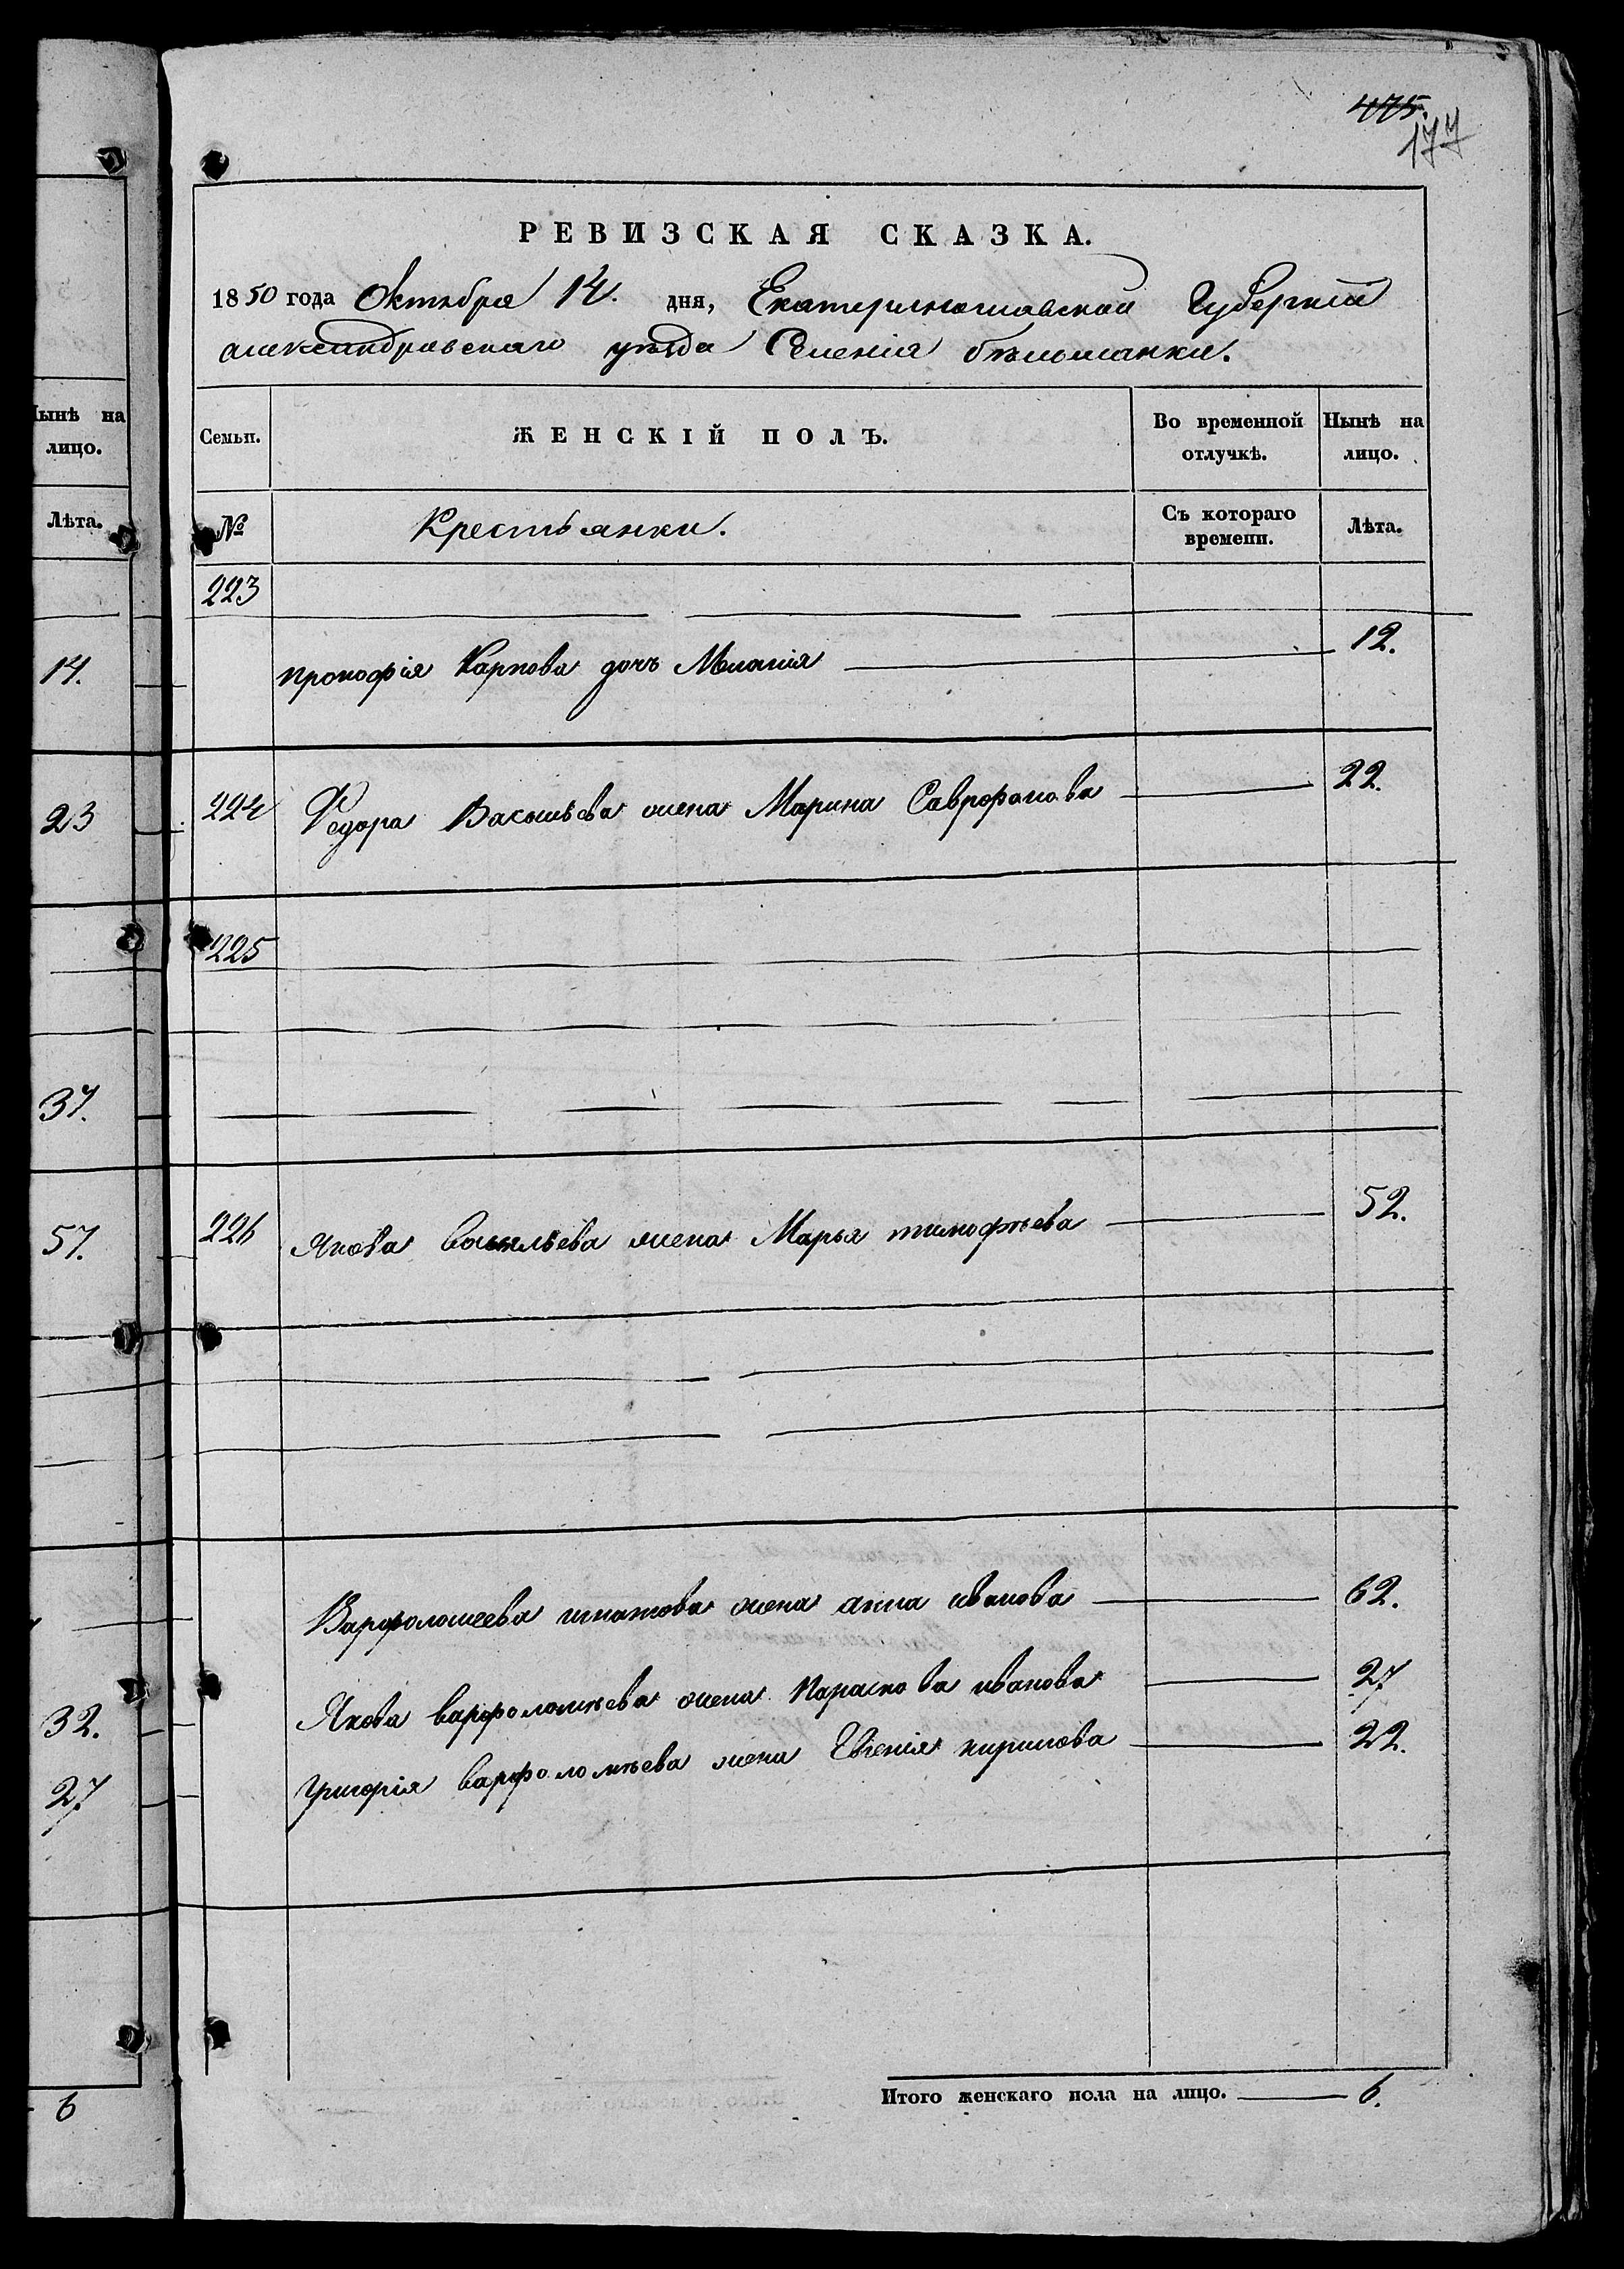 475.
177
РЕВИЗСКАЯ СКАЗКА.
1850 года Октября 14. дня, Екатеринославской Губерніи
александровскаго уѣзда Селенія бѣльманки.
Нынѣ на лицо.
Лѣта.
14.
23
37.
57.
32.
27
6
Семьи. ЖЕНСКІЙ ПОЛЪ. Во временной отлучкѣ. Нынѣ на лицо.
№ Крестьянки. Съ котораго времени. Лѣта.
223
прокофія Карпова дочь Меланія 12.
224 Федора Васильева жена Марина 22.
225
226 Якова васильева жена Марья тимофѣева 52.
Варфоломеева игнатова жена анна иванова 62.
Якова варфоломѣева жена Парасковa иванова 27
григорія варфоломѣева жена Евгенія кирилова 22.
Итого женскаго пола на лицо. 6.